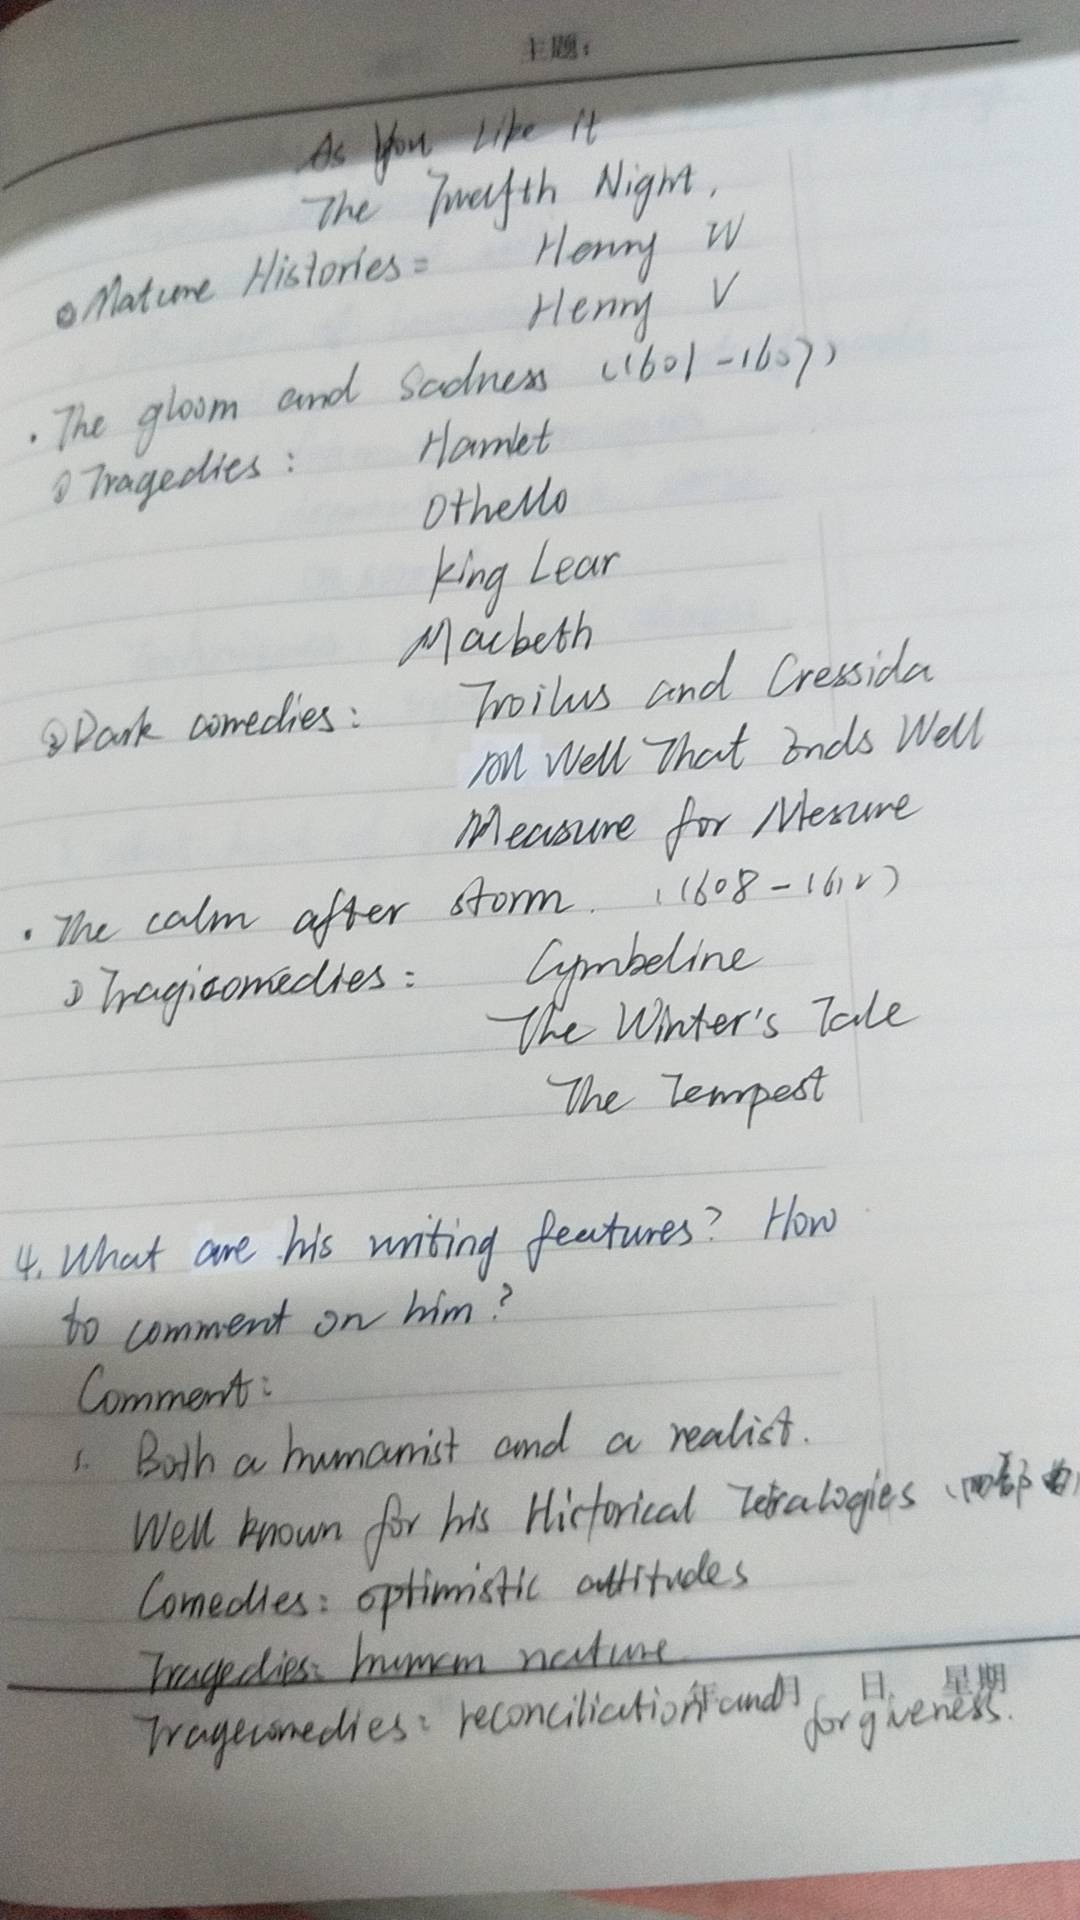 主题:
As You Like It
The Twelfth Night,
Mature Histories: Henry IV
Henry V
· The gloom and Sadness (1601-1607)
① Tragedies: Hamlet
Othello
King Lear
Macbeth
② Dark comedies: Troilus and Cressida
All Well That Ends Well
Measure for Mesure
· The calm after storm. (1608-1612)
① Tragicomedies: Cymbeline
The Winter's Tale
The Tempest
4. What are his writing features? How
to comment on him?
Comment:
1. Both a humanist and a realist.
Well known for his Historical Tetralogies (四部曲)
Comedies: optimistic attitudes
Tragedies: human nature
Tragecomedies: reconciliation and forgiveness.
年 月 日 星期